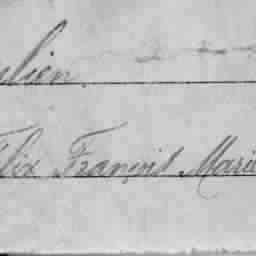 ulien
Félix François Marie